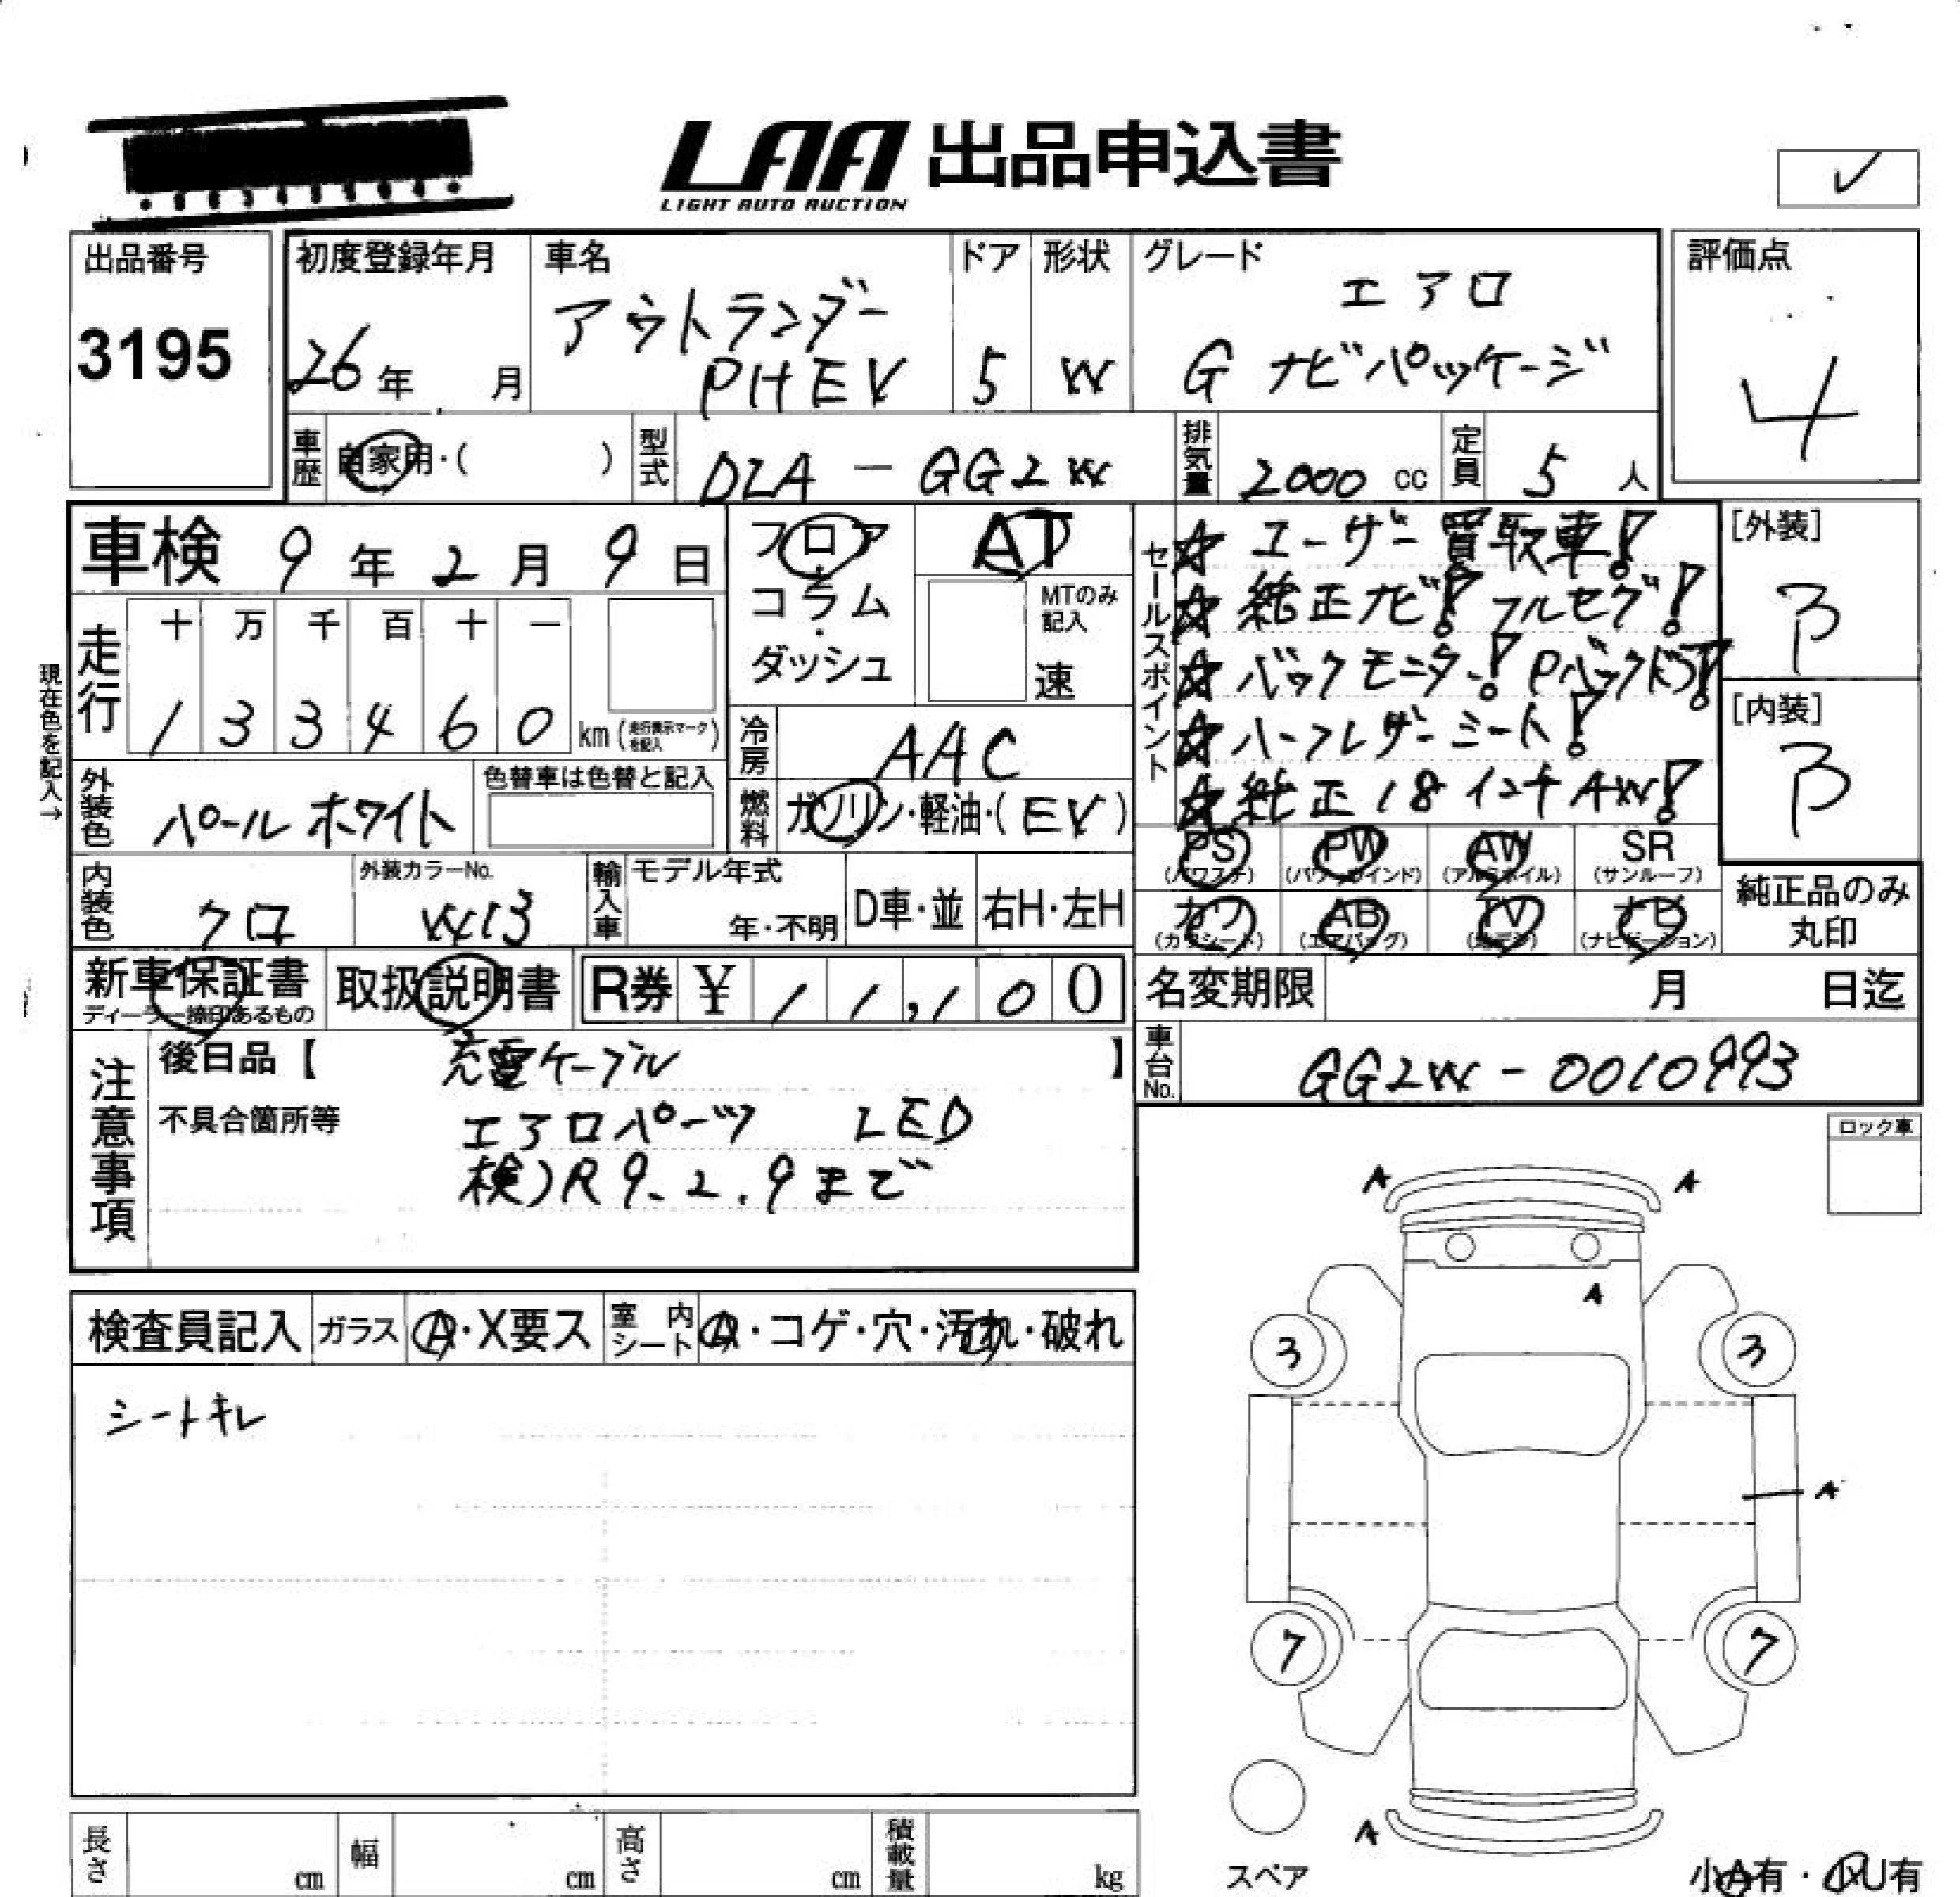 LAA 出品申込書
LIGHT AUTO AUCTION
出品番号
3195
初度登録年月
26年 月
車名
アウトランダー
PHEV
ドア
5
形状
W
グレード
エアロ
G ナビパッケージ
評価点
4
車歴 自家用・( )
型式 DLA-GG2W
排気量 2000 cc
定員 5 人
車検 9年2月9日
フロア
コラム
・
ダッシュ
AT
MTのみ
記入
速
走行
十 万 千 百 十 一
1 3 3 4 6 0 km (走行表示マークを記入)
現在色を記入→
冷房 AAC
外装色 パールホワイト
色替車は色替と記入
燃料 ガソリン・軽油・(EV)
セールスポイント
☆ユーザー買取車!
☆純正ナビ!フルセグ!
☆バックモニター!Pバックドア!
☆ハーフレザーシート!
☆純正18インチAW!
[外装]
B
[内装]
B
PS
(パワステ)
PW
(パワーウインド)
AW
(アルミホイル)
SR
(サンルーフ)
カワ
(カワシート)
AB
(エアバッグ)
TV
(地デジ)
ナビ
(ナビゲーション)
純正品のみ
丸印
内装色 クロ
外装カラーNo.
W13
輸入車
モデル年式
年・不明
D車・並
右H・左H
新車保証書
ディーラー捺印あるもの
取扱説明書
R券 ¥ 11,100
名変期限 月 日迄
車台No. GG2W-0010993
注意事項
後日品【 充電ケーブル 】
不具合箇所等 エアロパーツ LED
検)R9.2.9まで
ロック車
検査員記入 ガラス A・X要ス 室内シート A・コゲ・穴・汚れ・破れ
シートキレ
A A
A
3 3
A
7 7
A
スペア
小A有・小U有
長さ cm 幅 cm 高さ cm 積載量 kg